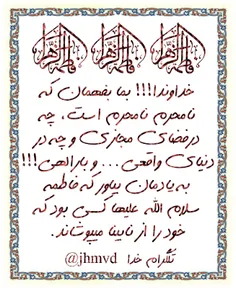 فاطمة الزهرا فاطمة الزهرا فاطمة الزهرا
خداوندا!!!! بما بفهمان که
نامحرم نامحرم است، چه
در فضای مجازی و چه در
دنیای واقعی ... و بارالهی!!!
به یادمان بیاور که فاطمه
سلام الله علیها کسی بود که
خود را از نابینا میپوشاند.
تلگرام خدا @jhmvd